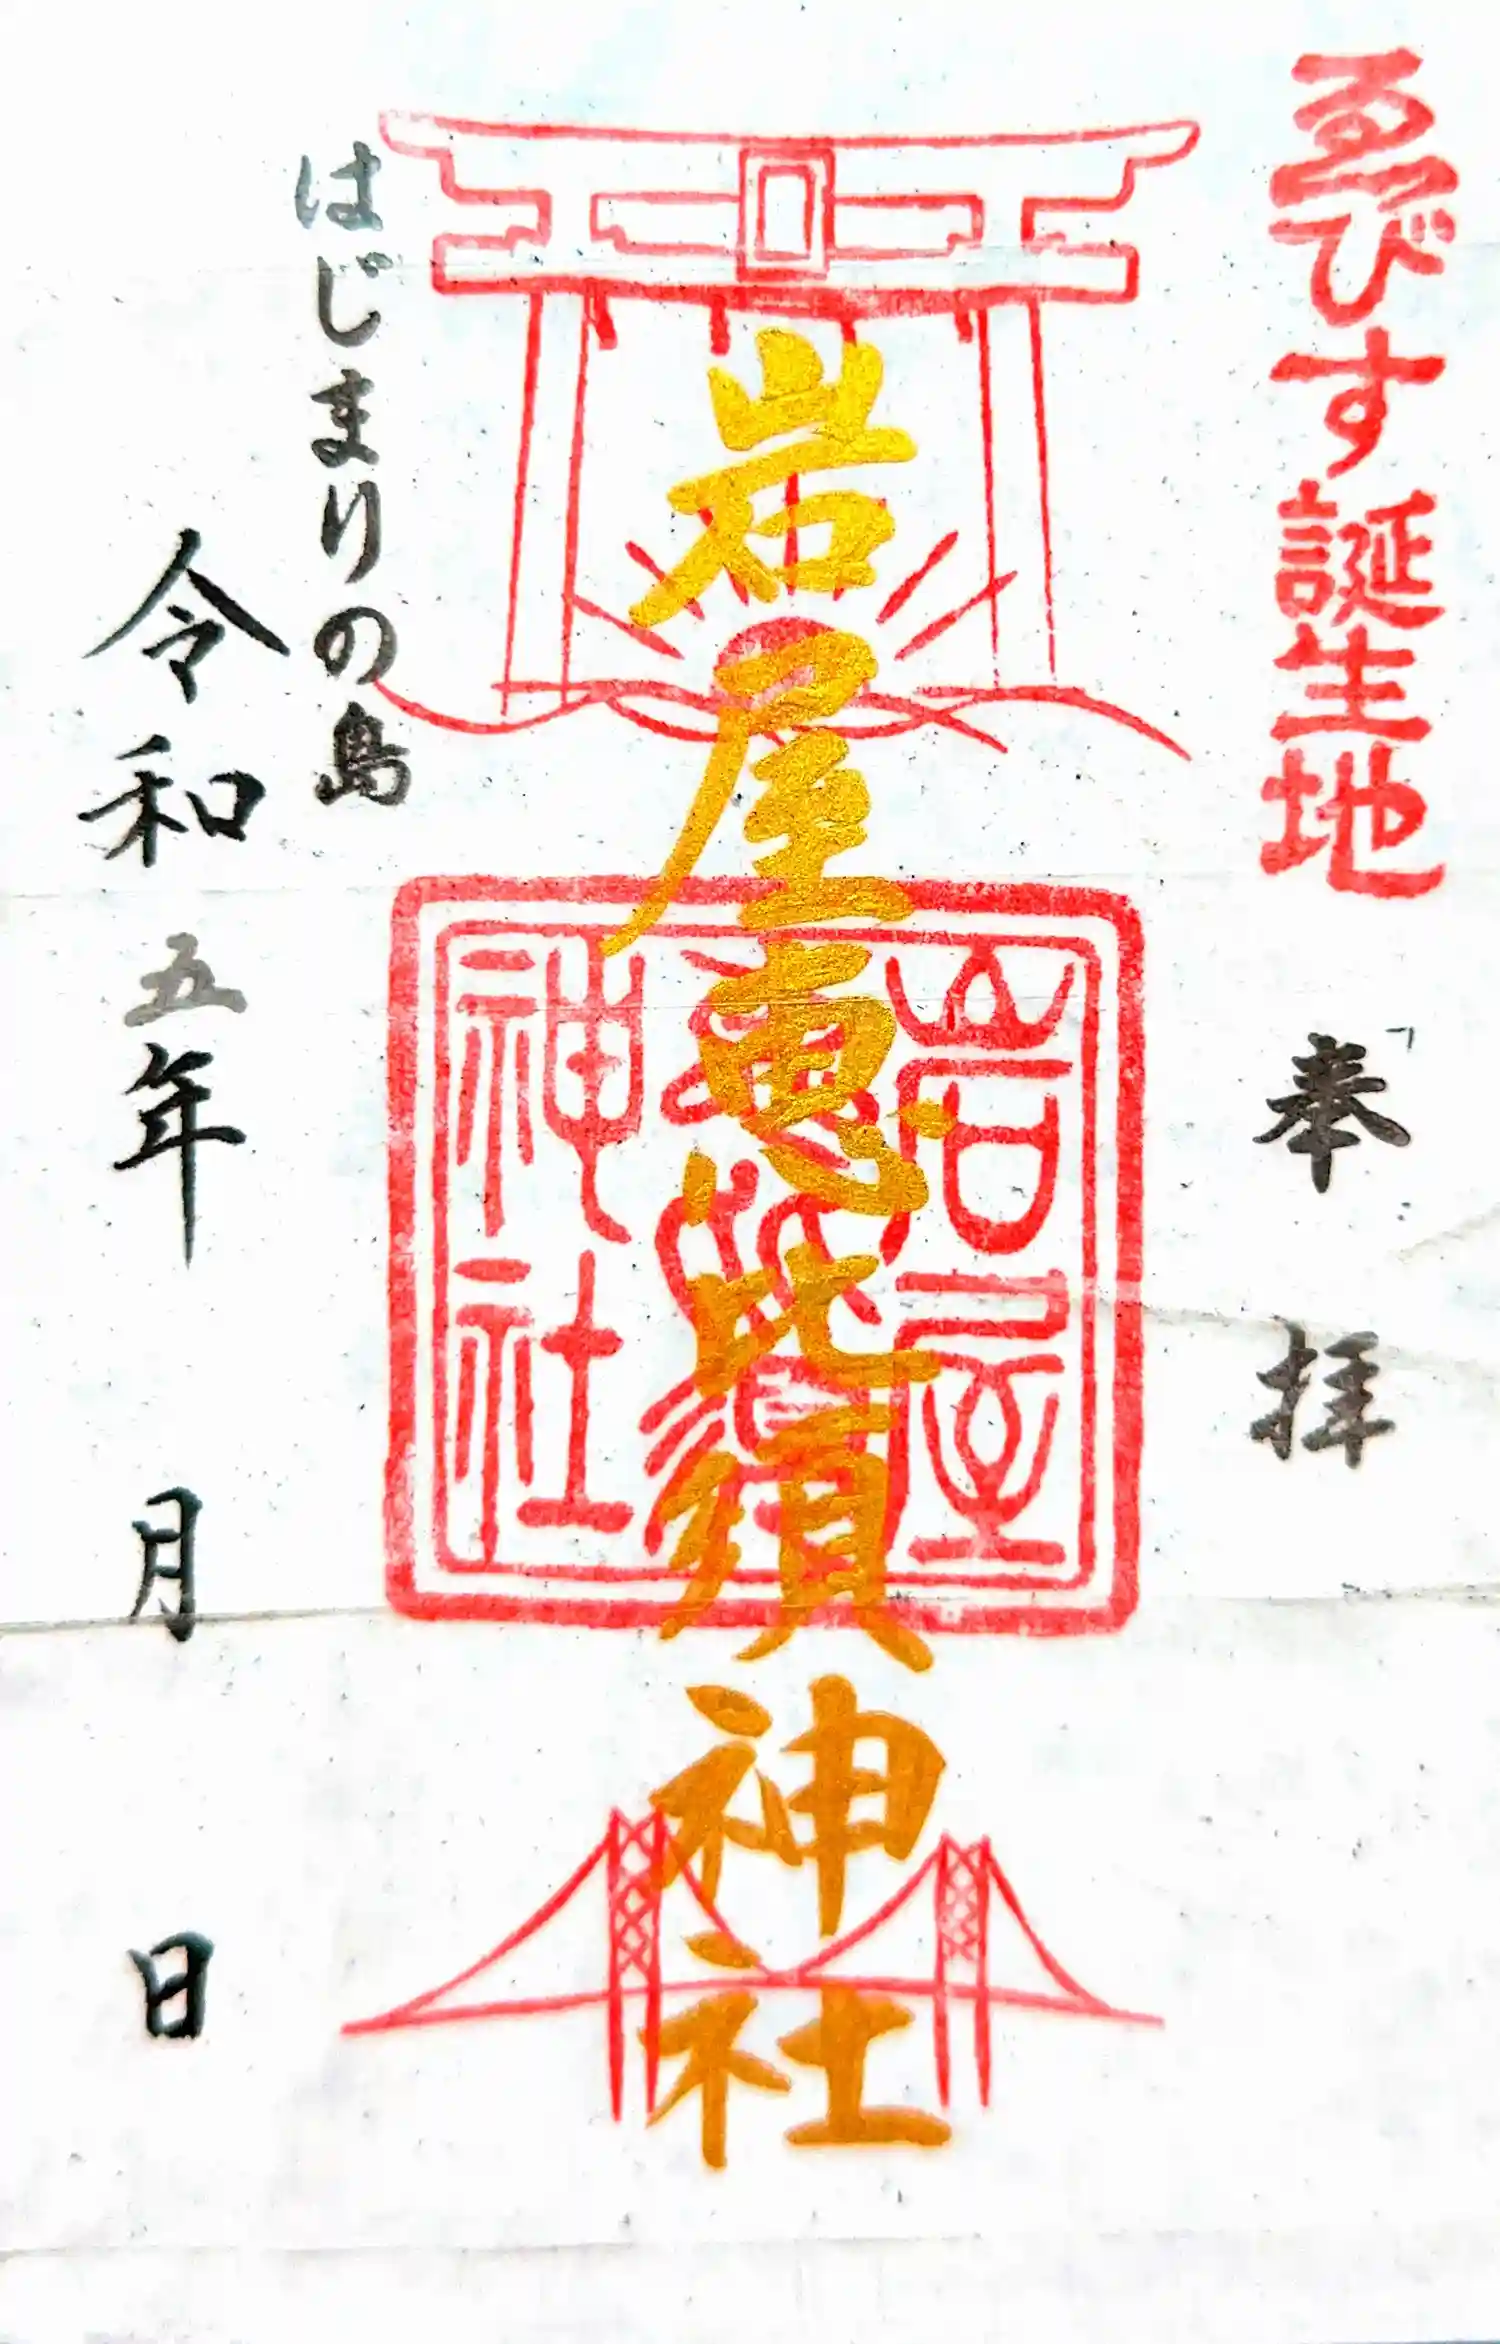 ゑびす誕生地
奉拝
岩屋恵比須神社
岩屋
恵比須
神社
はじまりの島
令和五年 月 日